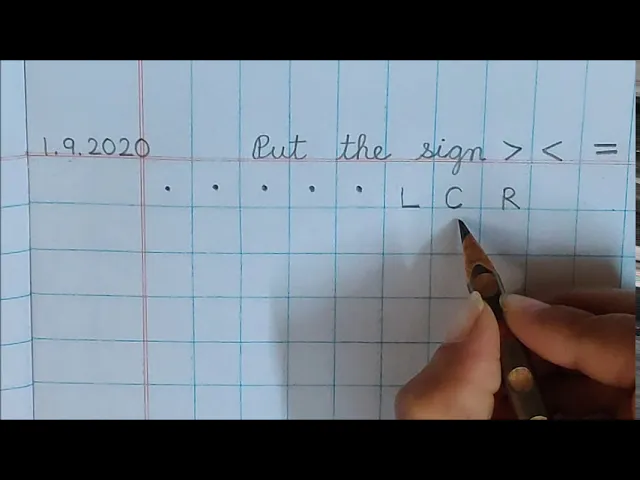 1.9.2020 Put the sign > < =
. . . . . L C R